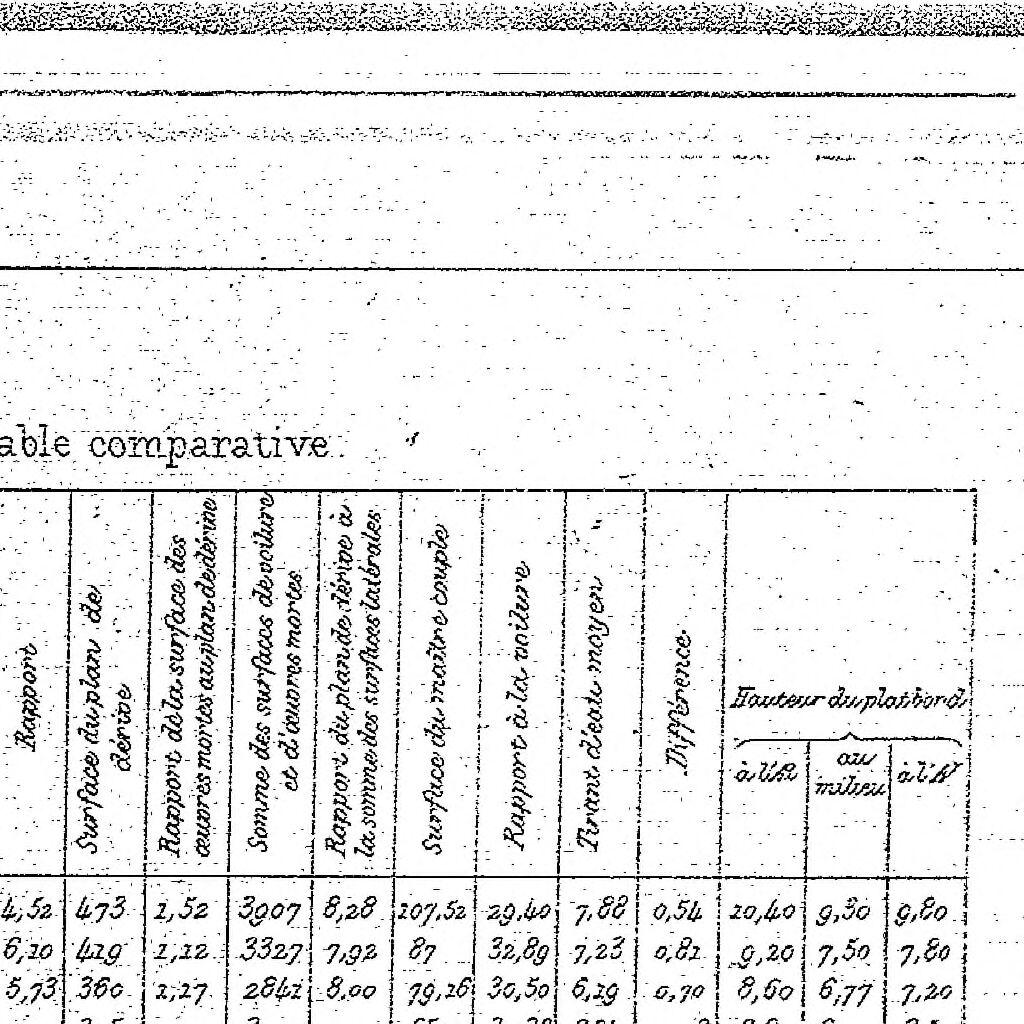 able comparative.
Rapport
Surface du plan de
dérive
Rapport de la surface des
œuvres mortes au plan de dérive
Somme des surfaces de voilure
et d'œuvres mortes
Rapport du plan de dérive à
la somme des surfaces latérales
Surface du maître couple
Rapport à la voilure
Tirant d'eau moyen
Différence
Hauteur du platbord
à l'Æ
au
milieu
à l'N
4,52 473 1,52 3907 8,28 107,52 29,40 7,88 0,54 10,40 9,30 9,80
6,10 419 1,12 3327 7,92 87 32,89 7,23 0,81 9,20 7,50 7,80
5,73 360 1,17 2841 8,00 79,16 30,50 6,19 0,70 8,60 6,77 7,20